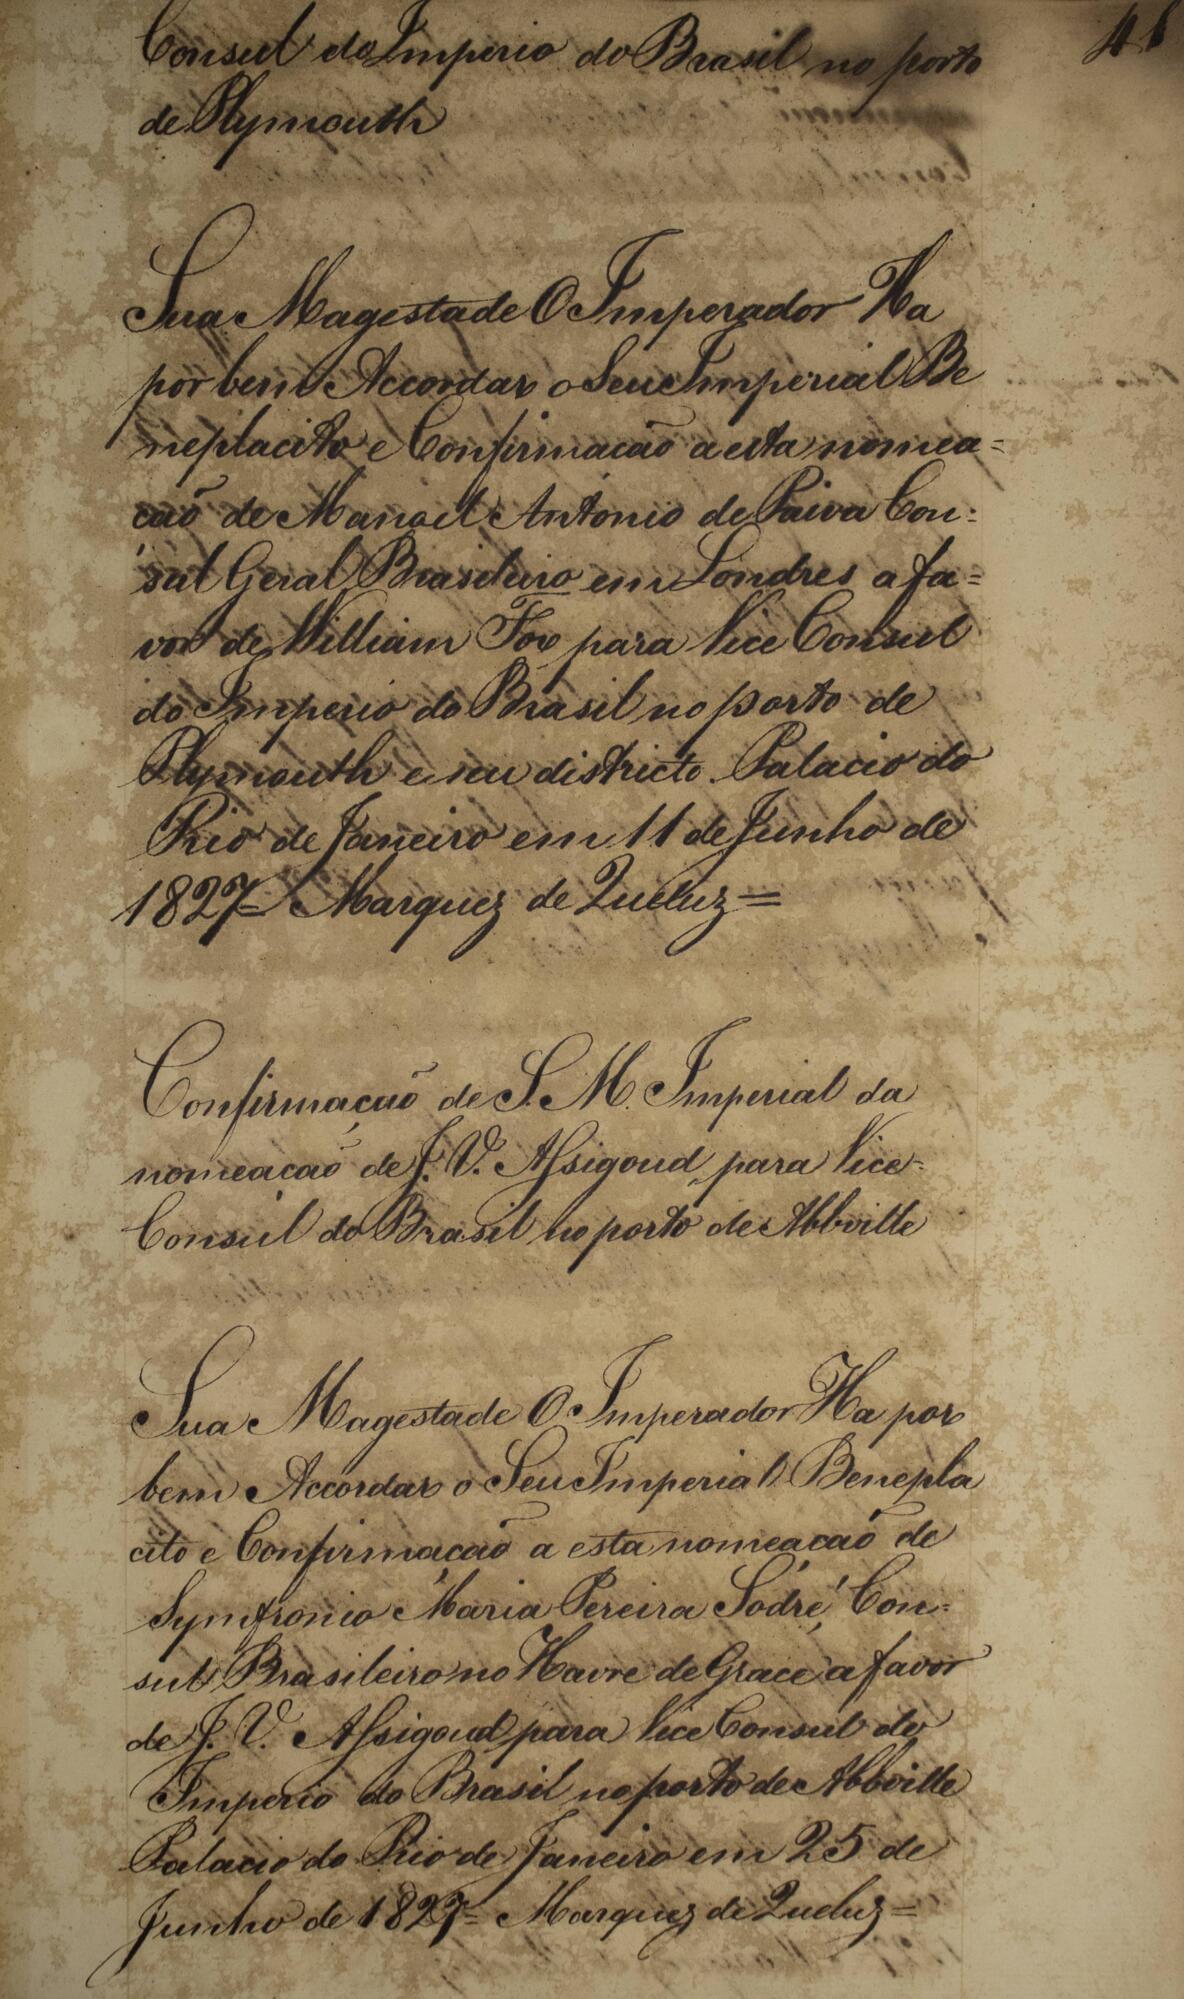 Consul do Imperio do Brasil no porto
de Plymouth
Sua Magestade O Imperador Ha
por bem Accordar o Seu Imperial Be
neplacito e Confirmacaõ a esta nomea=
caõ de Manoel Antonio de Paiva Con=
sul Geral Brasileiro em Londres a fa=
vor de William Fox para Vice Consul
do Imperio do Brasil no porto de
Plymouth e seu districto. Palacio do
Rio de Janeiro em 11 de Junho de
1827= Marquez de Queluz=
Confirmaçaõ de S. M. Imperial da
nomeacaõ de J. V. Assigoud para Vice=
Consul do Brasil no porto de Abbville
Sua Magestade O Imperador Ha por
bem Accordar o Seu Imperial Benepla
cito e Confirmaçaõ a esta nomeacaõ de
Symfronio Maria Pereira Sodré, Con=
sul Brasileiro no Havre de Grace a favor
de J. V. Assigoud para Vice Consul do
Imperio do Brasil no porto de Abbville
Palacio do Rio de Janeiro em 25 de
Junho de 1827= Marquez de Queluz=